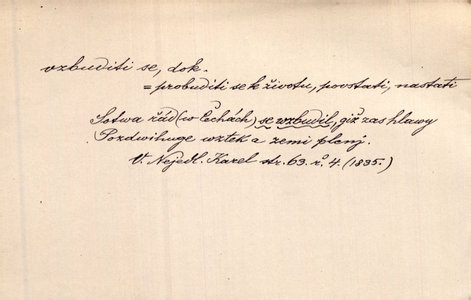 vzbuditi se, dok.
= probuditi se k životu, povstati, nastati
Sotwa řád (w Čechách) se wzbudil, giž zas hlawy
Pozdwihuge wztek a zemi plenj.
V. Nejedl. Karel str. 63. ř. 4. (1835.)